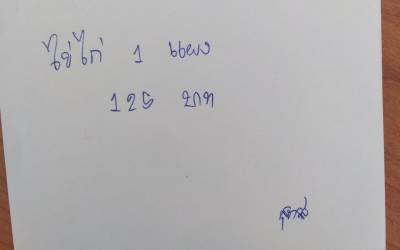 ไข่ไก่ 1 แผง
125 บาท